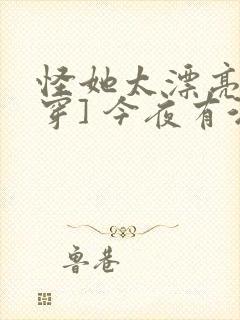 怪她太漂亮
穿] 今夜有
鲁巷